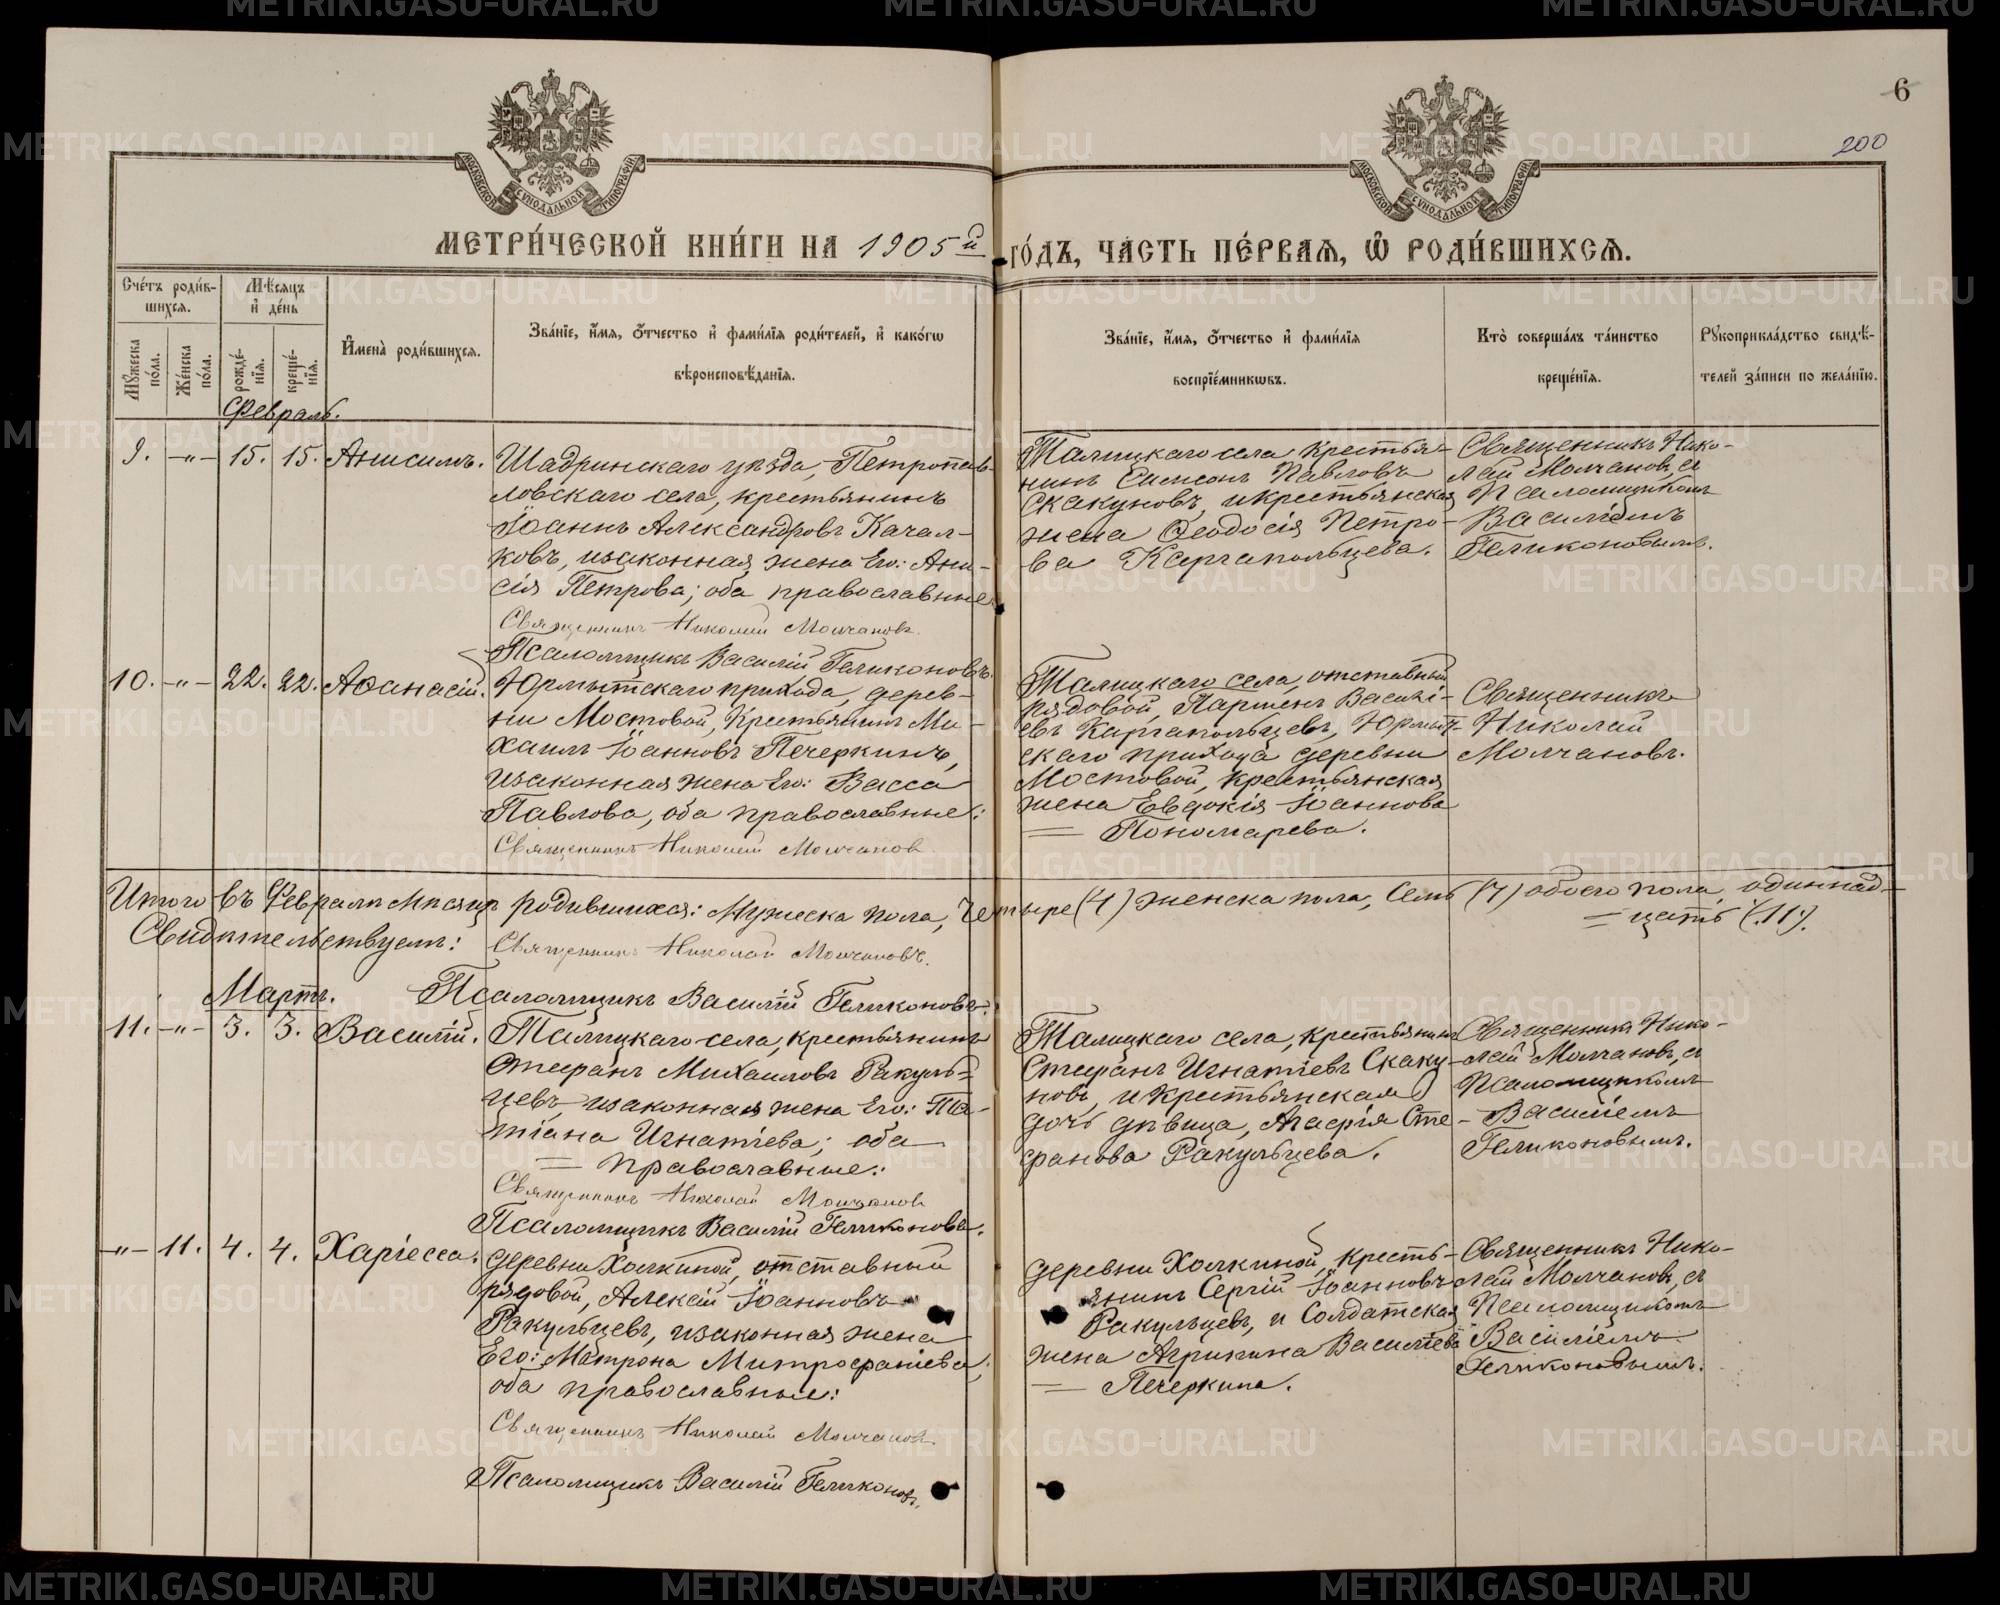 6
200
МОСКОВСКОЙ СѴНОДАЛЬНОЙ ТИПОГРАФІИ
МОСКОВСКОЙ СѴНОДАЛЬНОЙ ТИПОГРАФІИ
МЕТРИ́ЧЕСКОЙ КНИ́ГИ НА 1905й го́дъ, ЧА́СТЬ ПЕ́РВАѦ, Ѿ РОДИ́ВШИХСѦ.
Сче́тъ роди́в-
шихсѧ.
Мѣ́сѧцъ
и҆ де́нь
Мꙋ́жеска
по́ла.
Же́нска
по́ла.
рожде́-
нїѧ.
креще́-
нїѧ.
И҆мена̀ роди́вшихсѧ.
Зва́нїе, и҆́мѧ, ѻ҆́тчество и҆ фами́лїѧ роди́телей, и҆ како́гѡ
вѣроисповѣ́данїѧ.
Зва́нїе, и҆́мѧ, ѻ҆́тчество и҆ фами́лїѧ
воспрїе́мникѡвъ.
Кто̀ соверша́лъ та́инство
креще́нїѧ.
Рꙋкоприкла́дство свидѣ́-
телей за́писи по жела́нїю.
Февраль.
9. -"- 15. 15. Анисимъ.
Шадринскаго уѣзда, Петропав-
ловскаго села, крестьянинъ
Іоаннъ Александровъ Качал-
ковъ, изаконная жена Его: Ани-
сія Петрова; оба православные
Священникъ Николай Молчановъ.
Псаломщикъ Василій Геликоновъ.
Талицкаго села, крестья-
нинъ Симеонъ Павловъ
Скакуновъ, и крестьянская
жена Ѳеодосія Петро-
ва Каргапольцева.
Священникъ Нико-
лай Молчановъ, съ
Псаломщикомъ
Василіемъ
Геликоновымъ.
10. -"- 22. 22. Аѳанасій.
Юрмытскаго прихода, дерев-
ни Мостовой, Крестьянинъ Ми-
хаилъ Іоанновъ Печеркинъ,
изаконная жена Его: Васса
Павлова, оба православные:
Священникъ Николай Молчанов
Талицкаго села, отставный
рядовой, Парменъ Василі-
евъ Каргапольцевъ, Юрмыт-
скаго прихода деревни
Мостовой, крестьянская
жена Евдокія Іоаннова
= Пономарева.
Священникъ
Николай
Молчановъ.
Итого въ Февралѣ мѣсяцѣ родившихся: Мужеска пола, Четыре (4) женска пола, Семь (7) обоего пола, одиннад-
= цать (11).
Свидѣтельствуемъ: Священникъ Николай Молчановъ.
Псаломщикъ Василій Геликоновъ.
Мартъ.
11. -"- 3. 3. Василій.
Талицкаго села, крестьянинъ
Стефанъ Михаиловъ Ракуль-
цевъ, изаконная жена Его: Та-
тіана Игнатіева; оба
= православные:
Священникъ Николай Молчанов
Псаломщикъ Василій Геликоновъ.
Талицкаго села, крестьянинъ
Стефанъ Игнатіевъ Скаку-
новъ, и Крестьянская
дочь дѣвица, Агафія Сте-
фанова Ракульцева.
Священникъ Нико-
лай Молчановъ, съ
Псаломщикомъ
Василіемъ
Геликоновымъ.
-"- 11. 4. 4. Харіесса.
деревни Холкиной, отставный
рядовой, Алексій Іоанновъ
Ракульцевъ, изаконная жена
Его: Матрона Митрофаніева,
оба православные:
Священникъ Николай Молчанов.
Псаломщикъ Василій Геликоновъ.
деревни Холкиной, кресть-
янинъ Сергій Іоанновъ
Ракульцевъ, и Солдатская
жена Агрипина Василіева
= Печеркина.
Священникъ Нико-
лай Молчановъ, съ
Псаломщикомъ
Василіемъ
Геликоновымъ.
METRIKI.GASO-URAL.RU